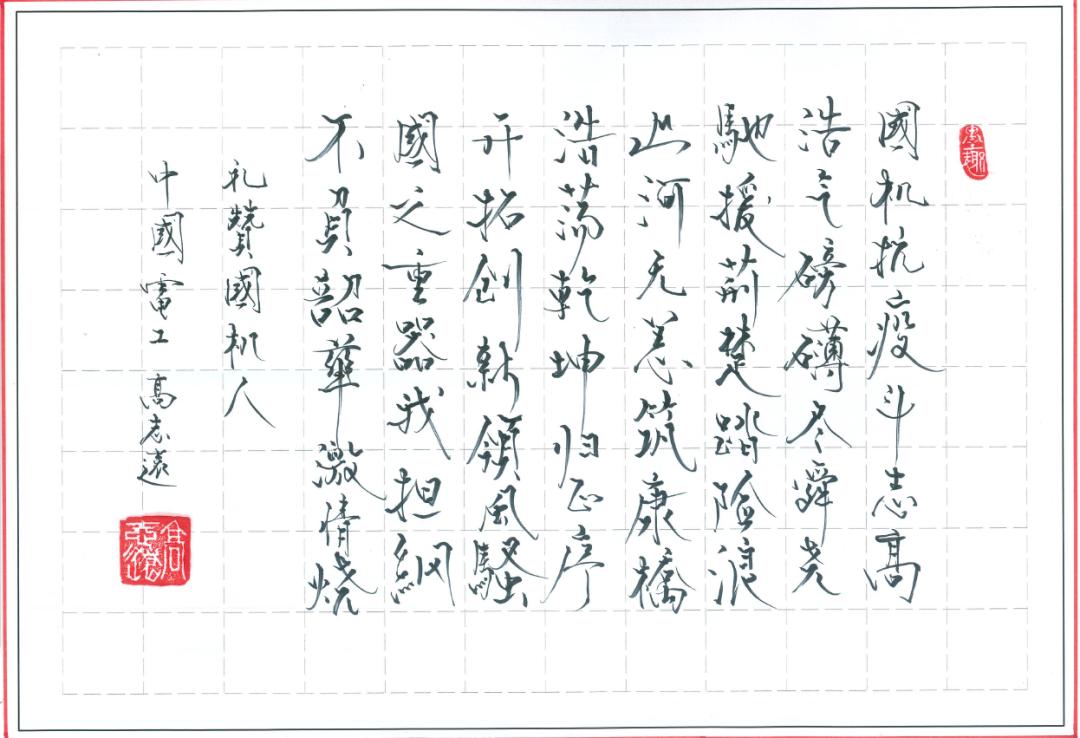 國机抗疫斗志高
浩气磅礴尽舜尧
馳援荆楚踏险浪
山河无恙筑康橋
浩荡乾坤归正序
开拓创新領风騷
國之重器我担綱
不負韶華激情烧
礼贊國机人
中國電工 高志遠